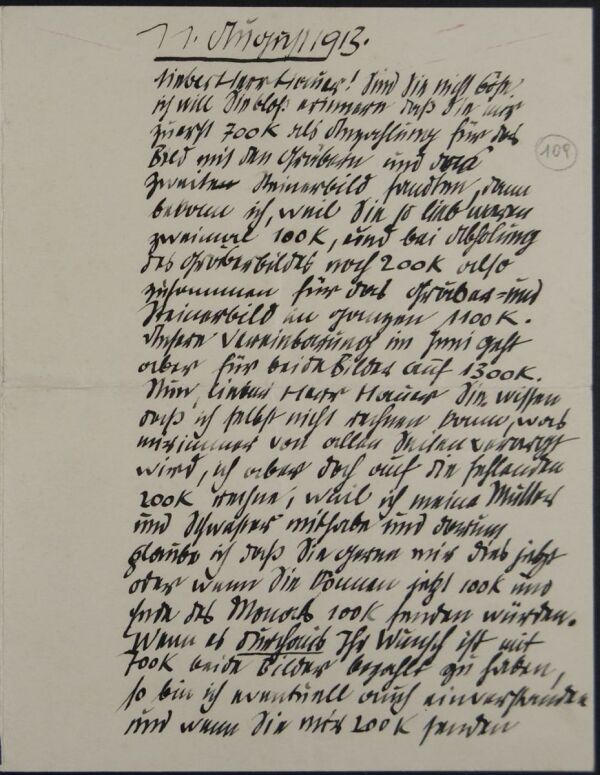 11. August 1913.
lieber Herr Hauer! Sind Sie nicht böse,
ich will Sie bloß erinnern daß Sie mir
zuerst 700K als Anzahlung für das
109
Bild mit den Gräbern und
zweiten Steinerbild sandten, dann
bekam ich, weil Sie so lieb waren
zweimal 100K, und bei Abholung
des Gräberbildes noch 200K also
zusammen für das Gräber- und
Steinerbild im ganzen 1100K.
Unsere Vereinbarung im Juni geht
aber für beide Bilder auf 1300K.
Nun, lieber Herr Hauer Sie wissen
daß ich selbst nicht rechnen kann, was
mir immer von allen Seiten verargt
wird, ich aber doch auf die fehlenden
200K rechne, weil ich meine Mutter
und Schwester mithabe und darum
glaube ich daß Sie gerne mir dies jetzt
oder wenn Sie können jetzt 100K und
Ende des Monats 100K senden würden.
Wenn es durchaus Ihr Wunsch ist mit
beide Bilder bezahlt zu haben,
so bin ich eventuell auch einverstanden
und wenn Sie mir 200K senden